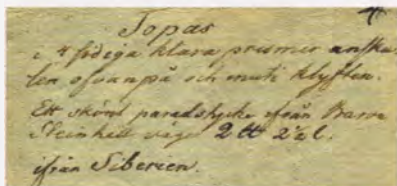 Topas
i 4 sidiga klara prismer
len ofvanpå och inuti klyften.
Ett skönt paradstycke ifrån Baron
Steinheil väger 2 ℔ 2½ L.
ifrån Siberien.